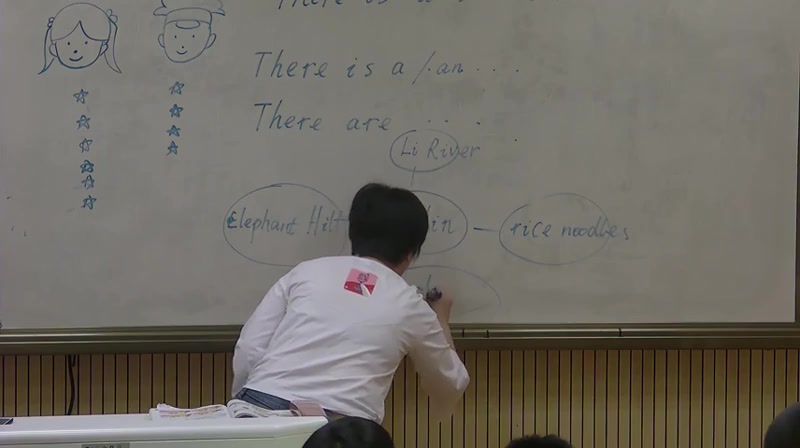 There is a
There is a / an ...
There are ...
Li River
Elephant Hill
lin — rice noodles